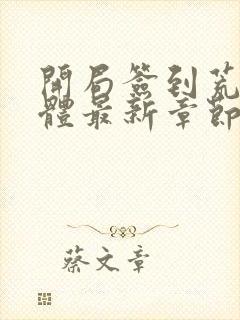 開局簽到荒
體最新章節
蔡文章